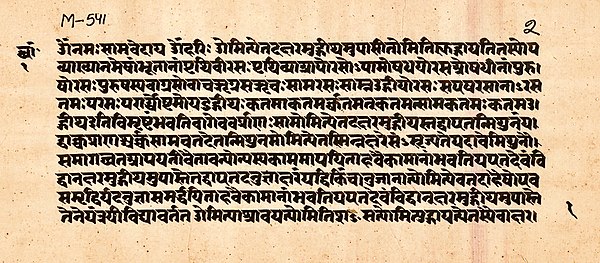 M-541
२
छां
ॐ नमः सामवेदाय ॐ हरिः ओमित्येतदक्षरमुद्गीथमुपासीतोमिति ह्युद्गायति तस्योप
व्याख्यानमेषां भूतानां पृथिवी रसः पृथिव्या आपो रसोऽपामोषधयो रस ओषधीनां पुरु
षो रसः पुरुषस्य वाग्रसो वाच ऋग्रस ऋचः साम रसः साम्न उद्गीथो रसः स एष रसानां रस
तमः परमः परार्ध्योऽष्टमो य उद्गीथः कतमा कतमर्क्कतमत्कतमत्साम कतमः कतम उ
द्गीथ इति विमृष्टं भवति वागेवर्क् प्राणः सामोमित्येतदक्षरमुद्गीथस्तद्वा एतन्मिथुनं य
द्वाक्च प्राणश्चर्क्च साम च तदेतन्मिथुनमोमित्येतस्मिन्नक्षरे संसृज्यते यदा वै मिथुनौ
समागच्छत आपयतो वै तावन्योन्यस्य काममापयिता ह वै कामानां भवति य एतदेवं वि
द्वानक्षरमुद्गीथमुपास्ते तद्वा एतदनुज्ञाक्षरं यद्धि किंचानुजानात्योमित्येव तदाहैषो एव
समृद्धिर्यदनुज्ञा समर्द्धयिता ह वै कामानां भवति य एतदेवं विद्वानक्षरमुद्गीथमुपास्ते
तेनेयं त्रयी विद्या वर्तत ओमित्याश्रावयत्योमिति शंसत्योमित्युद्गायत्येतस्यैवाक्षर।